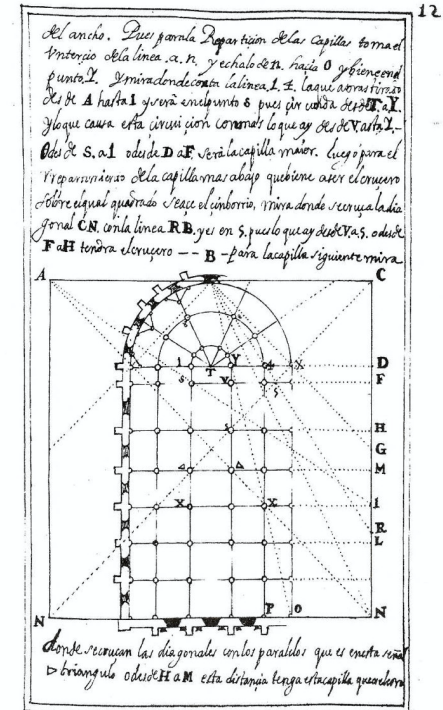 12
del ancho. Pues para la Repartiçion de las Capillas toma el
Un terçio de la linea .a. n. y echalo de n. haçia O y biene en el
punto, I. y mira donde corta la linea, 1. 4. la que aora se tiro
desde A hasta I y será en el punto s pues desde T a Y
y lo que causa esta con mas lo que ay desde V asta Y.
O desde S. a 1 o desde D a F, será la capilla maior. Luego para el
de la capilla mas abajo que biene a ser el cruçero
sobre el qual quadrado se açe el cinborrio, mira donde se cruça la dia
gonal CN, con la linea RB, y es en S, pues lo que ay desde V a S. o desde
F a H tendra el cruçero -- para la capilla siguiente mira
A B C
1 Y 4 X D
T
S V F
S
S H
G
M
X X 1
R
L
N P O N
donde se cruçan las diagonales con los paralelos que es en esta señal
triangulo o desde H a M esta distançia tenga esta capilla